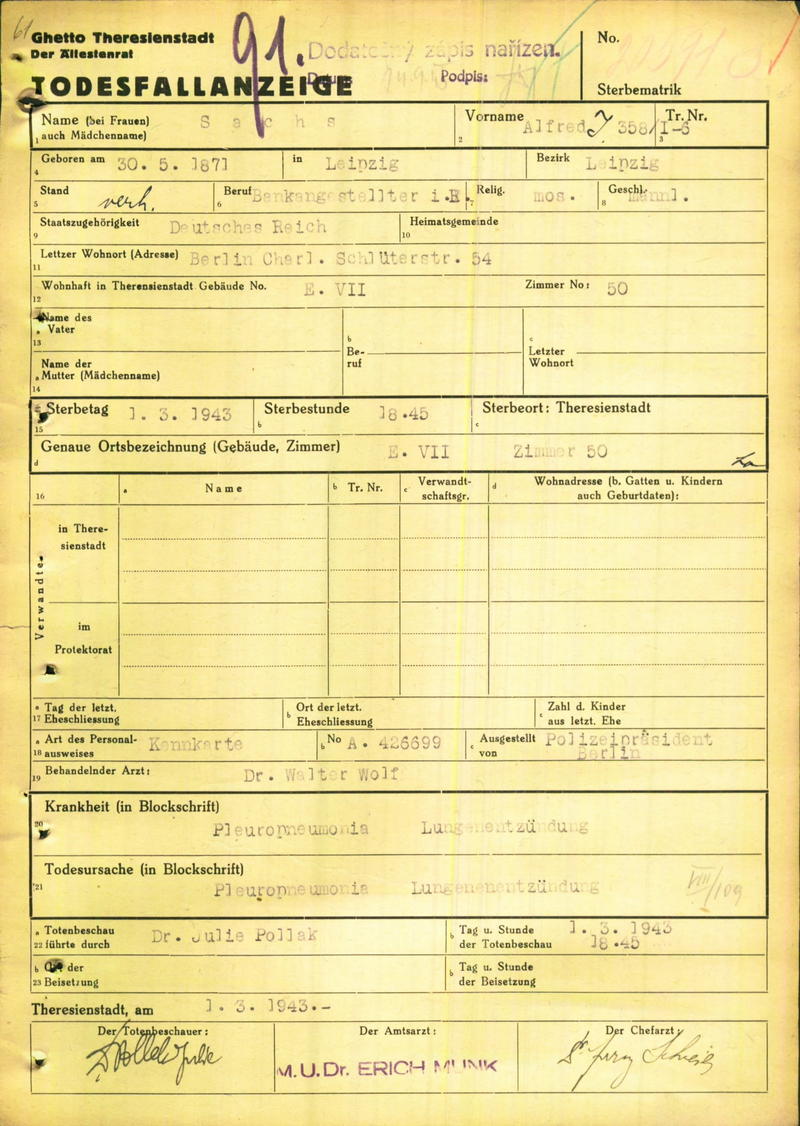 61
Ghetto Theresienstadt
Der Ältestenrat
91.
Dodatečný zápis nařízen.
Podpis:
No.
TODESFALLANZEIGE
Sterbematrik
Name (bei Frauen) Sachs
1 auch Mädchenname)
Vorname Alfred
2
Tr. Nr. 358/I-6
3
Geboren am 30. 5. 1871 in Leipzig Bezirk Leipzig
4
Stand verh. Beruf Bankangestellter i.R. Relig. mos. Geschl. männl.
5 6 7 8
Staatszugehörigkeit Deutsches Reich Heimatsgemeinde
9 10
Lettzer Wohnort (Adresse) Berlin Charl. Schlüterstr. 54
11
Wohnhaft in Therensienstadt Gebäude No. E. VII Zimmer No: 50
12
Name des
a Vater
13
b Beruf
c Letzter
Wohnort
Name der
a Mutter (Mädchenname)
14
Sterbetag 1. 3. 1943 Sterbestunde 18.45 Sterbeort: Theresienstadt
15 b c
Genaue Ortsbezeichnung (Gebäude, Zimmer) E. VII Zimmer 50
d
16 a Name b Tr. Nr. c Verwandt-
schaftsgr. d Wohnadresse (b. Gatten u. Kindern
auch Geburtdaten):
Verwandte
in There-
sienstadt
im
Protektorat
a Tag der letzt. b Ort der letzt. c Zahl d. Kinder
17 Eheschliessung Eheschliessung aus letzt. Ehe
a Art des Personal- Kennkarte b No A. 426699 c Ausgestellt Polizeipräsident
18 ausweises von Berlin
Behandelnder Arzt: Dr. Walter Wolf
19
Krankheit (in Blockschrift)
20
Pleuropneumonia Lungenentzündung
Todesursache (in Blockschrift)
21
Pleuropneumonia Lungenenentzündung
VIII/109
a Totenbeschau Dr. Julie Pollak b Tag u. Stunde 1. 3. 1943
22 führte durch der Totenbeschau 18.45
b Ort der b Tag u. Stunde
23 Beisetzung der Beisetzung
Theresienstadt, am 1. 3. 1943.-
Der Totenbeschauer: Der Amtsarzt: Der Chefarzt:
M.U.Dr. ERICH MUNK